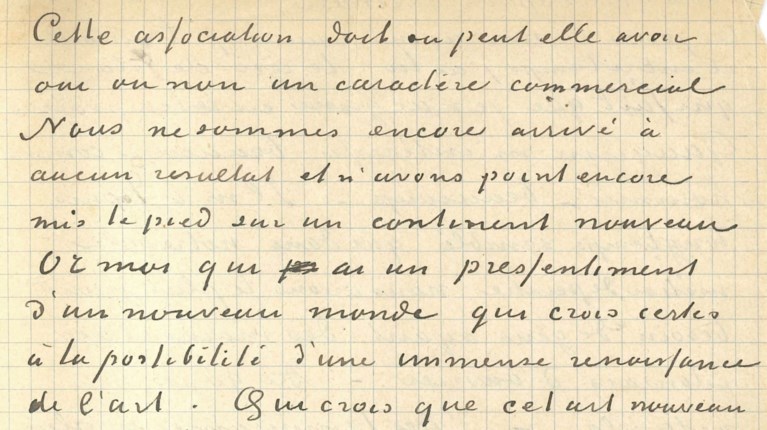 Cette association doit ou peut elle avoir
oui ou non un caractère commercial
Nous ne sommes encore arrivé à
aucun resultat et n'avons point encore
mis le pied sur un continent nouveau
Or moi qui ai un pressentiment
d'un nouveau monde qui crois certes
à la possibilité d'une immense renaissance
de l'art. Qui crois que cet art nouveau